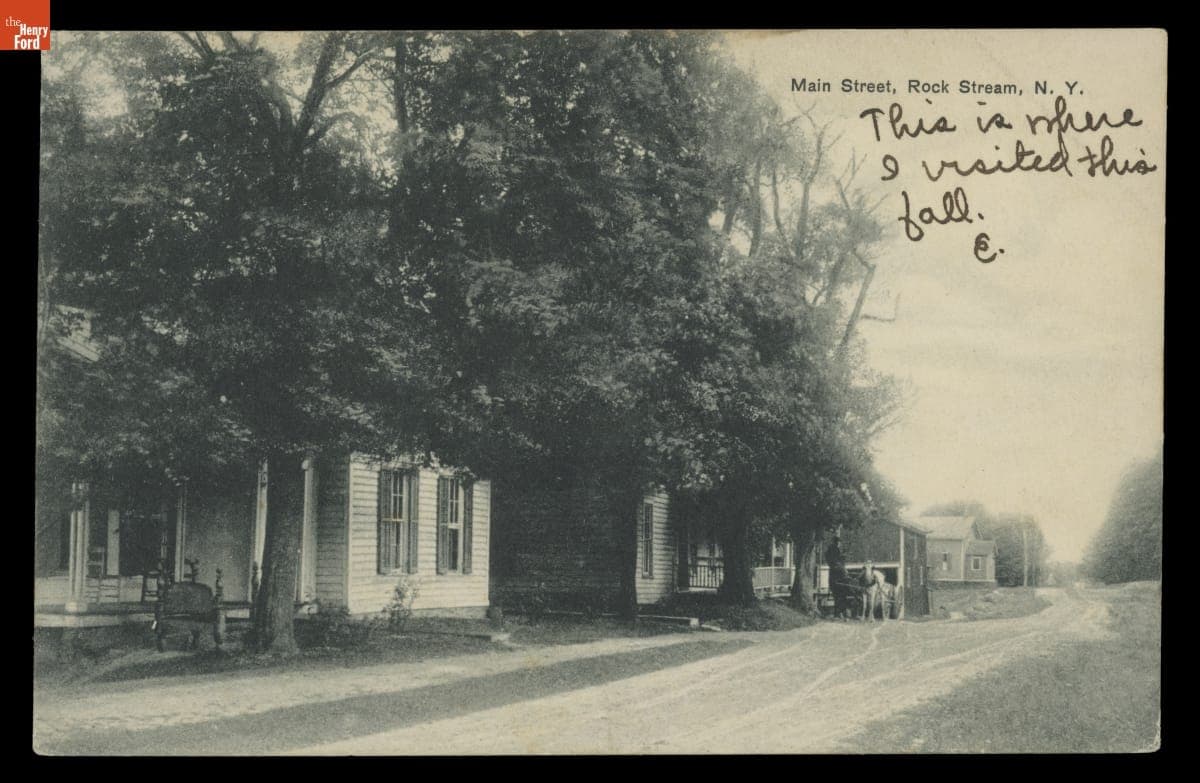 the
Henry
Ford
Main Street, Rock Stream, N. Y.
This is where
I visited this
fall.
E.